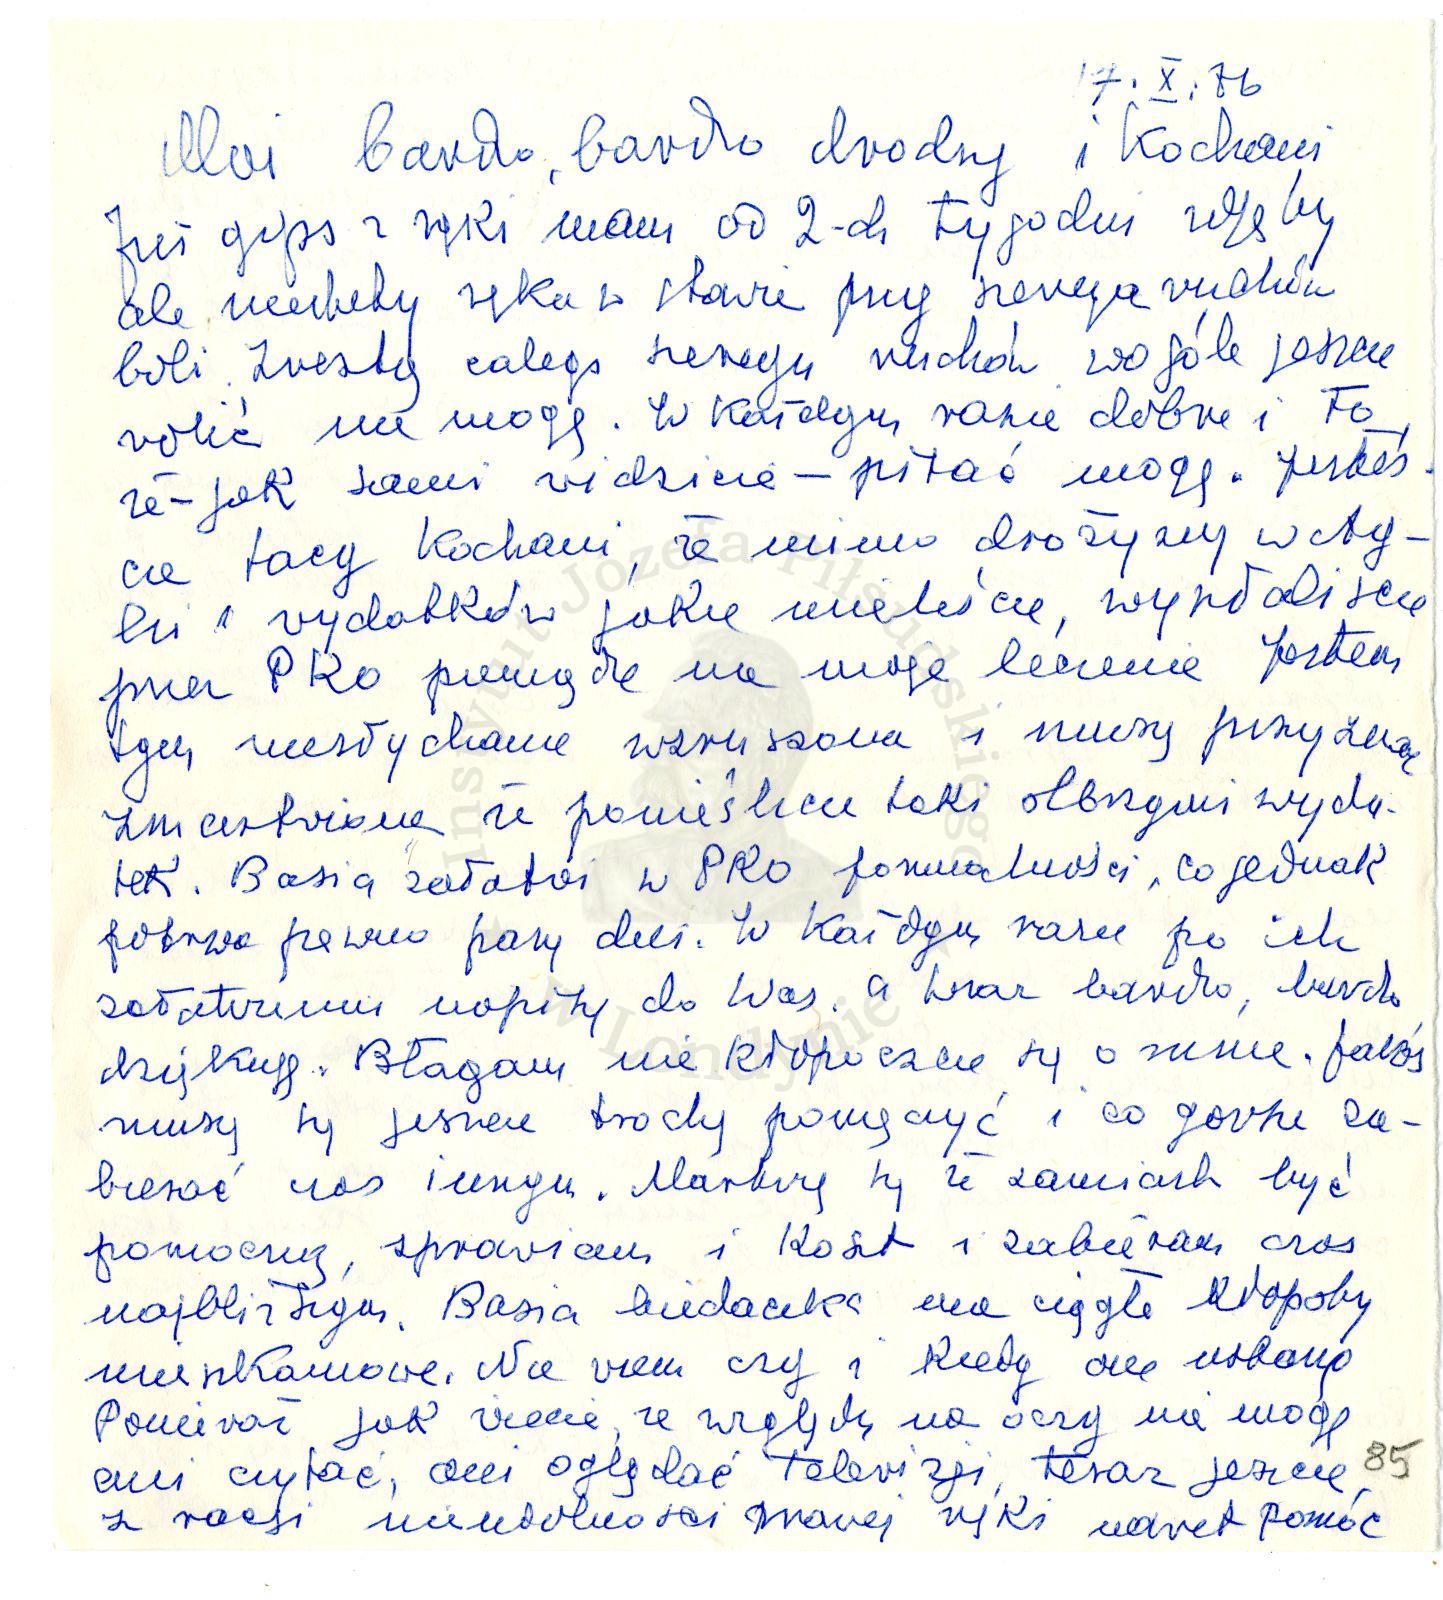 17.X.76
Moi bardzo, bardzo drodzy i Kochani
Już gips z ręki mam od 2-ch tygodni zdjęty
ale niestety ręka w stawie przy szeregu ruchów
boli. Zresztą całego szeregu ruchów wogóle jeszcze
robić nie mogę. W każdym razie dobre i to,
że – jak sami widzicie – pisać mogę. Jesteś-
cie tacy Kochani, że mimo drożyzny w Any-
lii i wydatków jakie mieliście, wysłaliście
przez PKO pieniądze na moje leczenie Jestem
tym niesłychanie wzruszona i muszę przyznać
zmartwiona że ponieśliście taki olbrzymi wyda-
tek. Basia załatwi w PKO formalności, co jednak
potrwa pewno parę dni. W każdym razie po ich
załatwieniu napiszę do Was. a teraz bardzo, bardzo
dziękuję. Błagam nie kłopoczcie się o mnie. Jakoś
muszę się jeszcze trochę pomęczyć i co gorsze za-
bierać czas innym. Martwię się że zamiast być
pomocną, sprawiam i koszt i zabieram czas
najbliższym. Basia biedaczka ma ciągłe kłopoty
mieszkaniowe. Nie wiem czy i kiedy one ustaną
Ponieważ jak wiecie, ze względu na oczy nie mogę
ani czytać, ani oglądać Telewizji, teraz jeszcze
z racji nieudolności prawej ręki nawet pomóc
85
Instytut Józefa Piłsudskiego
w Londynie